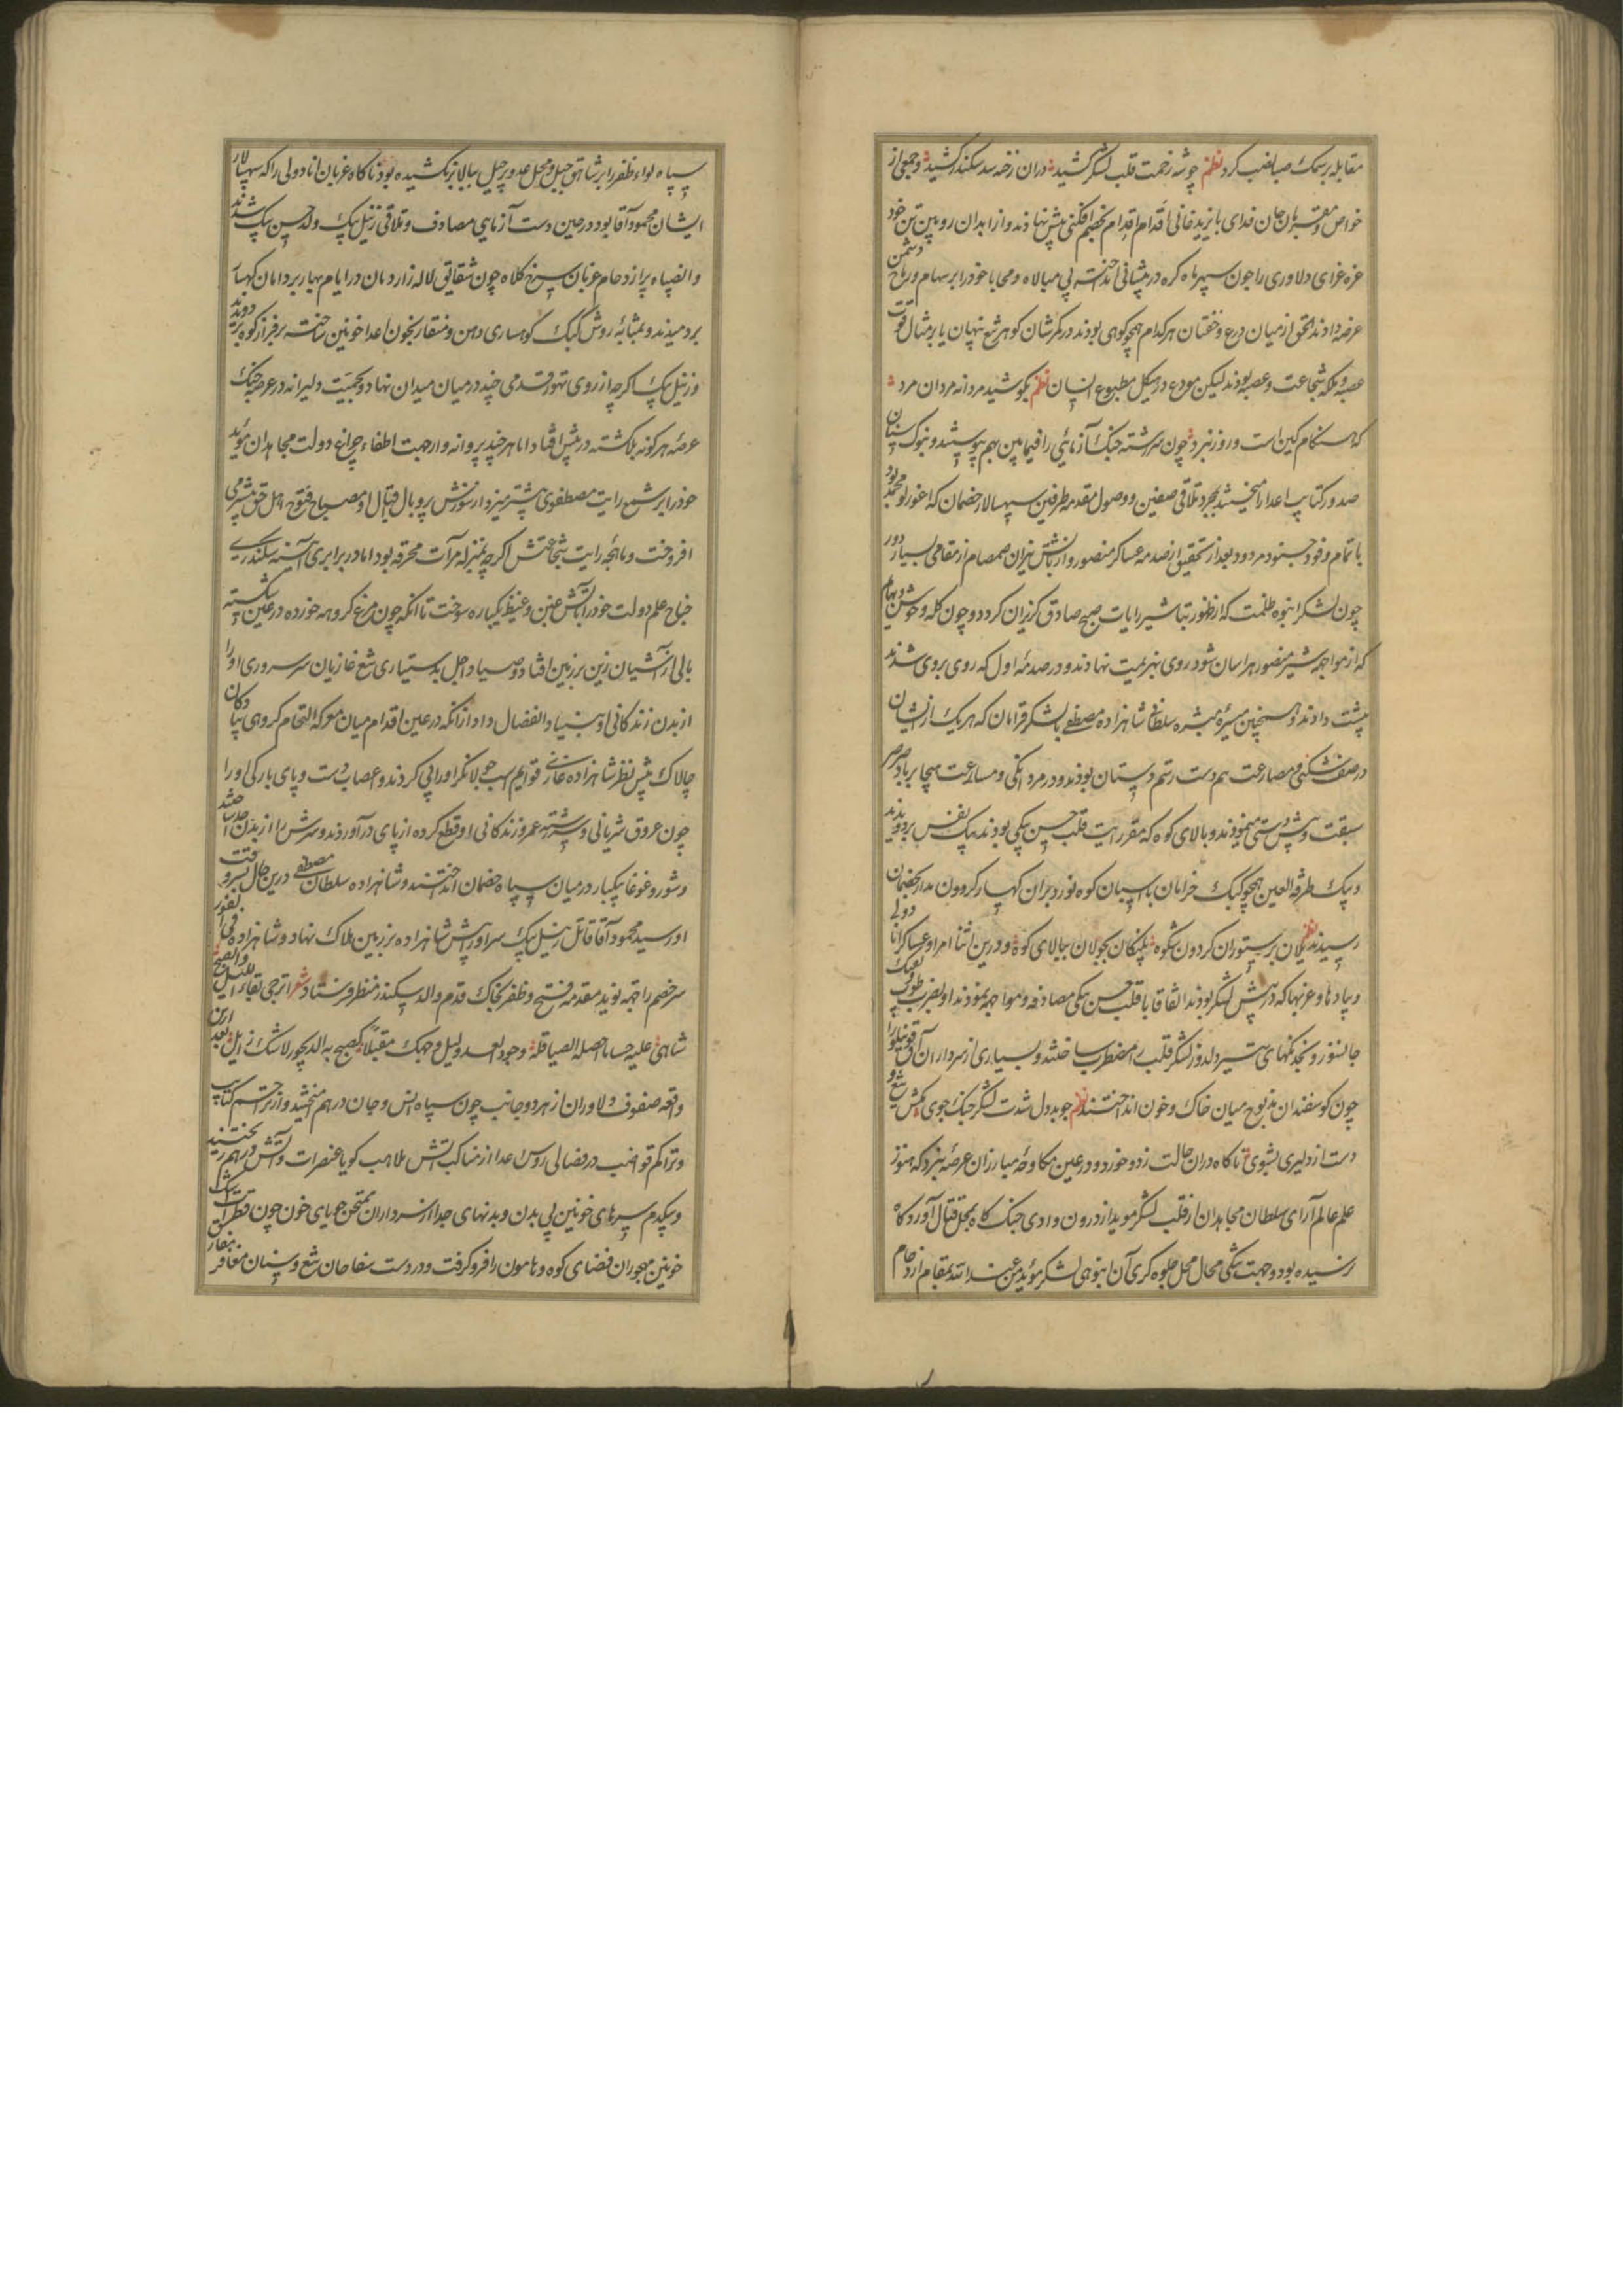 مقابله بر سمک صبا نصب کرد نظم چو شه زخمت قلب لشکر کشید در آن رخنه سد سکندر کشید و جمعی از
خواص و مقربان جان فدای بایزید خانی اقدام اقدام بخصم افکنی پیش نهادند و از ابدان رویین تن خود
غره غرای دلاوری را چون سپر ماه کره در پیشانی انداخته بی مبالاه و محابا خود را بر سهام و رماح دشمن
عرضه دادند الحق از میان درع و خفتان هر کدام همچو کوهی بودند در کمرشان گوهر تیغ نهان یا بر مثال قوت
عصبه و ملکه شجاعت و عصبه بودند لیکن مودع در هیکل مطبوع انسان نظم بکوشید مردانه مردان مرد
که هنگام کین است و روز نبرد چون سررشته جنگ آزمائی را فیما بین بهم پیوستند و بنوک سنان
صدور کتایب اعدا را میخستند بمجرد تلاقی صفین و وصول مقدمه طرفین سپهسالار خصمان که اغورلو محمد بود
با تمام وفود جنود مردود بعد از تحقیق از صدمه عساکر منصور و از تابش نیران صمصام از مقامی بسیار دور
چون لشکر انبوه ظلمت که از ظهور تباشیر رایات صبح صادق گریزان گردد و چون گله وحوش و بهایم
که از مواجهه شیر منصور هراسان شود روی بهزیمت نهادند و در صدمه اول که روی بروی شدند
پشت دادند و همچنین میسره میشره سلطانی شاهزاده مصطفی با لشکر قرامان که هر یک از ایشان
در صف شکنی و مصارعت هم دست رستم دستان بودند و در مردانگی و مسارعت هیجا بر باد صرصر
سبقت و پیش دستی مینمودند و بالای کوه که مقر رایت قلب حسن بیکی بودند بیک نفس بر دویدند
و بیک طرفة العین همچو کبک خرامان با اسبان کوه نورد بر آن کهسار گردون مدار بخصمان
رسیدند نظم یلان بر ستوران گردون شکوه پلنگان بجولان ببالای کوه و در این اثنا امرا و عساکر اناطولی
و پیادها و عزبها که در پیش لشکر بودند اتفاقا با قلب حسن بیکی مصادفه و مواجهه نمودند و بضرب طوپ و تفنک
جانسوز و بخدنگهای تیر دلدوز لشکر قلب را مضطرب ساختند و بسیاری از سرداران آق قوینلو را
چون گوسفندان مذبوح میان خاک و خون انداختند نظم چو بد دل شدت لشکر جنگ جوی بکش تیغ و
دست از دلیری بشوی تا گاه در آن حالت زد و خورد و در عین مکاوحه مبارزان عرصه نبرد که هنوز
علم عالم آرای سلطان مجاهدان از قلب لشکر موید از درون وادی جنگ گاه بمحل قتال آوردگاه
نرسیده بود و جهت تنگی محال محل جلوه گری آن انبوهی لشکر مؤید من عند الله بمقام ازدحام
سپاه لواء ظفر را بر شاهق جبل و محل عدو پر حیل ببالا بر نکشیده بود ناگاه عزبان اناطولی را که سپهسالار
ایشان محمود آقا بود در حین دست آزمایی مصادف و تلاقی زینل بیک ولد حسن بیک شدند
و الضپاه پر ازدحام عزبان سرخ کلاه چون شقایق لاله زار دمان در ایام بهار بر دامان کهسار
بر دمیدند و بمثابه روش کبک کوهساری دهن و منقار بخون اعدا خونین ساخته بر فراز کوه بر دویدند
و زینل بیک اگر چه از روی تهور قدمی چند در میان میدان نهاد و بحمیت دلیرانه در عرصه جنگ
عرضه هر گونه بلا گشته در پیش افتاد اما هر چند پروانه وار جهت اطفاء چراغ دولت مجاهدان موید
خود را بر شمع رایت مصطفوی بیشتر میزد از سوزش پر و بال قتال او مصباح فتوح اهل حق بیشتر می
افروخت و ماهچه رایت شجاعتش اگر چه بمنزله مرآت محرقه بود اما در برابری آینه سکندری
جناح علم دولت خود را بآتش غبن و غیظ یکباره سوخت تا آنکه چون مرغ گروهه خورده در عین شکسته
بالی از آشیان زین بر زمین افتاد و صیاد اجل بدستیاری تیغ غازیان سر سروری او را
از بدن زندگانی او بنیاد انفصال داد از آنکه در عین اقدام میان معرکه التحام گروهی پیادگان
چالاک پیش نظر شاهزاده غازی قوایم اسب جولانگر او را پی کردند و عصاب دست و پای بارگی او را
چون عروق شریانی و سررشته عمر و زندگانی او قطع کرده از پای در آوردند و سرش را از بدن جدا ساختند
و شور و غوغا بیکبار در میان سپاه خصمان انداختند و شاهزاده سلطان مصطفی درین حال بسر وقت
او رسید محمود آقا قاتل زینل بیک سر او را پیش شاهزاده بر زمین هلاک نهاد و شاهزاده فی الفور
سر خصم را جهة نوید مقدمه فتح و ظفر بخاک قدم والد سکندر منظر فرستاد شعر اترجی بقاء اللیل و الصبح
شاهر علیه حساما اصله الصیاقله وجود العدو لیل وجهک مقبلا کصبح به الدیجور لاشک زایل بعد ازین
واقعه صفوف دلاوران از هر دو جانب چون سپاه انس و جان در هم آمیختند و از تراجم کتایب
و تراکم قواضب در فضا لی روس اعدا از مناکب آتش ملاهب گویا عنصرات و آتش در هم ریختند
و بیکدم سرهای خونین بی بدن و بدنهای جدا از سر داران ممتحن جویای خون چون قطرات اشک
خونین مهجوران فضای کوه و هامون را فرو گرفت و در دست سفاحان تیغ و سنان مغافر